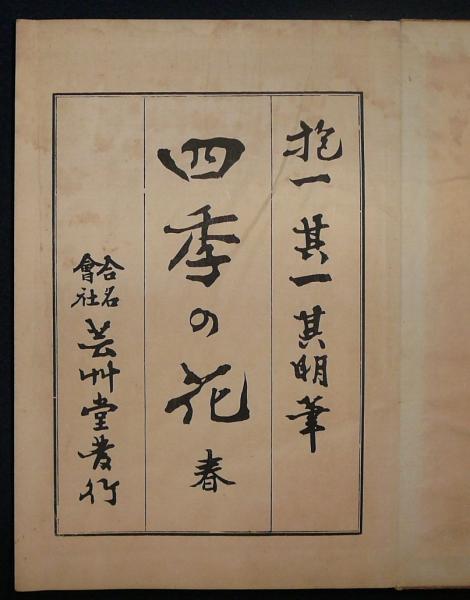 抱一其一其明筆
四季の花 春
合名會社 芸艸堂發行